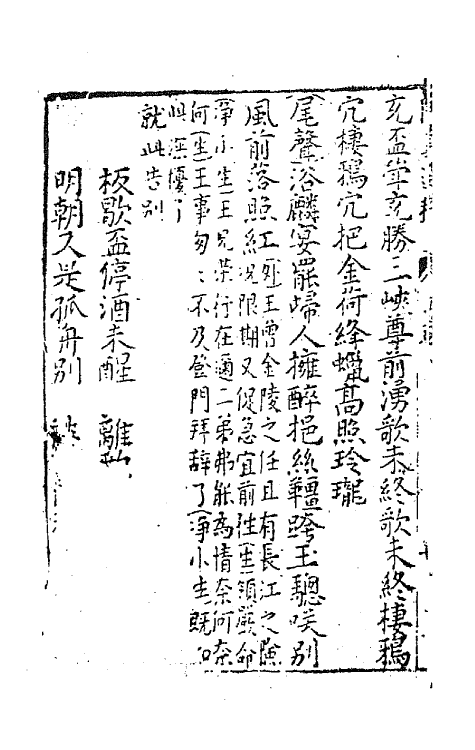 玄盃舉玄勝三峽尊前湧歌未終歌未終棲鴉
冗棲鴉冗把金荷絳蠟髙照玲瓏
尾聲浴麟宴罷歸人擁醉挹絲韁跨玉驄咲别
風前落照紅 王曾金陵之任且有長江之險
况限期又促急宜前徃生領嚴命
淨小生王兄荣行在邇二弟弗能為情奈何奈
何生王事匆匆不及登門拜辞了淨小生既如
此深擾了
就此告别
板歇盃停酒未醒 離
明朝又是孤舟别